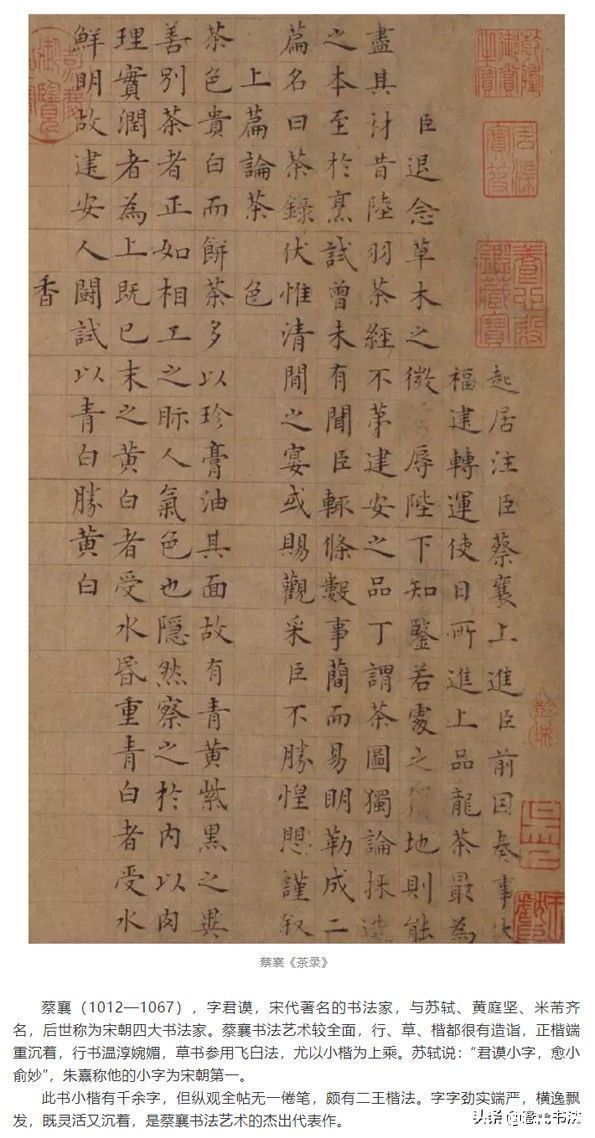 起居注臣蔡襄上進臣前因奏事伏
福建轉運使日所進上品龍茶最為
臣退念草木之微辱陛下知鑒若處之地則能
盡其材昔陸羽茶經不苐建安之品丁謂茶圖獨論採造
之本至於烹試曾未有聞臣輒條數事簡而易明勒成二
篇名曰茶錄伏惟清間之宴或賜觀采臣不勝惶懼謹叙
上篇論茶 色
茶色貴白而餅茶多以珍膏油其面故有青黃紫黑之異
善別茶者正如相工之眎人氣色也隱然察之於內以肉
理實潤者為上既已末之黃白者受水昏重青白者受水
鮮明故建安人鬪試以青白勝黃白
香
蔡襄《茶录》
蔡襄（1012—1067），字君谟，宋代著名的书法家，与苏轼、黄庭坚、米芾齐
名，后世称为宋朝四大书法家。蔡襄书法艺术较全面，行、草、楷都很有造诣，正楷端
重沉着，行书温淳婉媚，草书参用飞白法，尤以小楷为上乘。苏轼说：“君谟小字，愈小
俞妙”，朱熹称他的小字为宋朝第一。
此书小楷有千余字，但纵观全帖无一倦笔，颇有二王楷法。字字劲实端严，横逸飘
发，既灵活又沉着，是蔡襄书法艺术的杰出代表作。
头条